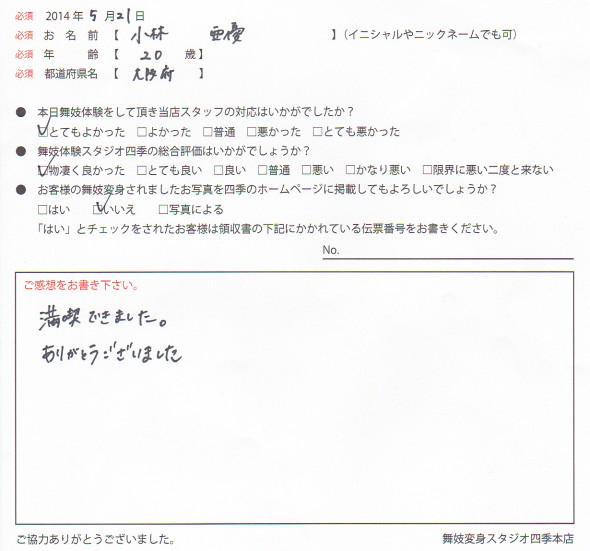 必須 2014年 5月21日
必須 お 名 前 【 小林 亜優 】(イニシャルやニックネームでも可)
必須 年 齢 【 20 歳】
必須 都道府県名 【 大阪府 】
● 本日舞妓体験をして頂き当店スタッフの対応はいかがでしたか?
☑とてもよかった □よかった □普通 □悪かった □とても悪かった
● 舞妓体験スタジオ四季の総合評価はいかがでしょうか?
☑物凄く良かった □とても良い □良い □普通 □悪い □かなり悪い □限界に悪い二度と来ない
● お客様の舞妓変身されましたお写真を四季のホームページに掲載してもよろしいでしょうか?
□はい ☑いいえ □写真による
「はい」とチェックをされたお客様は領収書の下記にかかれている伝票番号をお書きください。
No.
ご感想をお書き下さい。
満喫できました。
ありがとうございました
ご協力ありがとうございました。 舞妓変身スタジオ四季本店